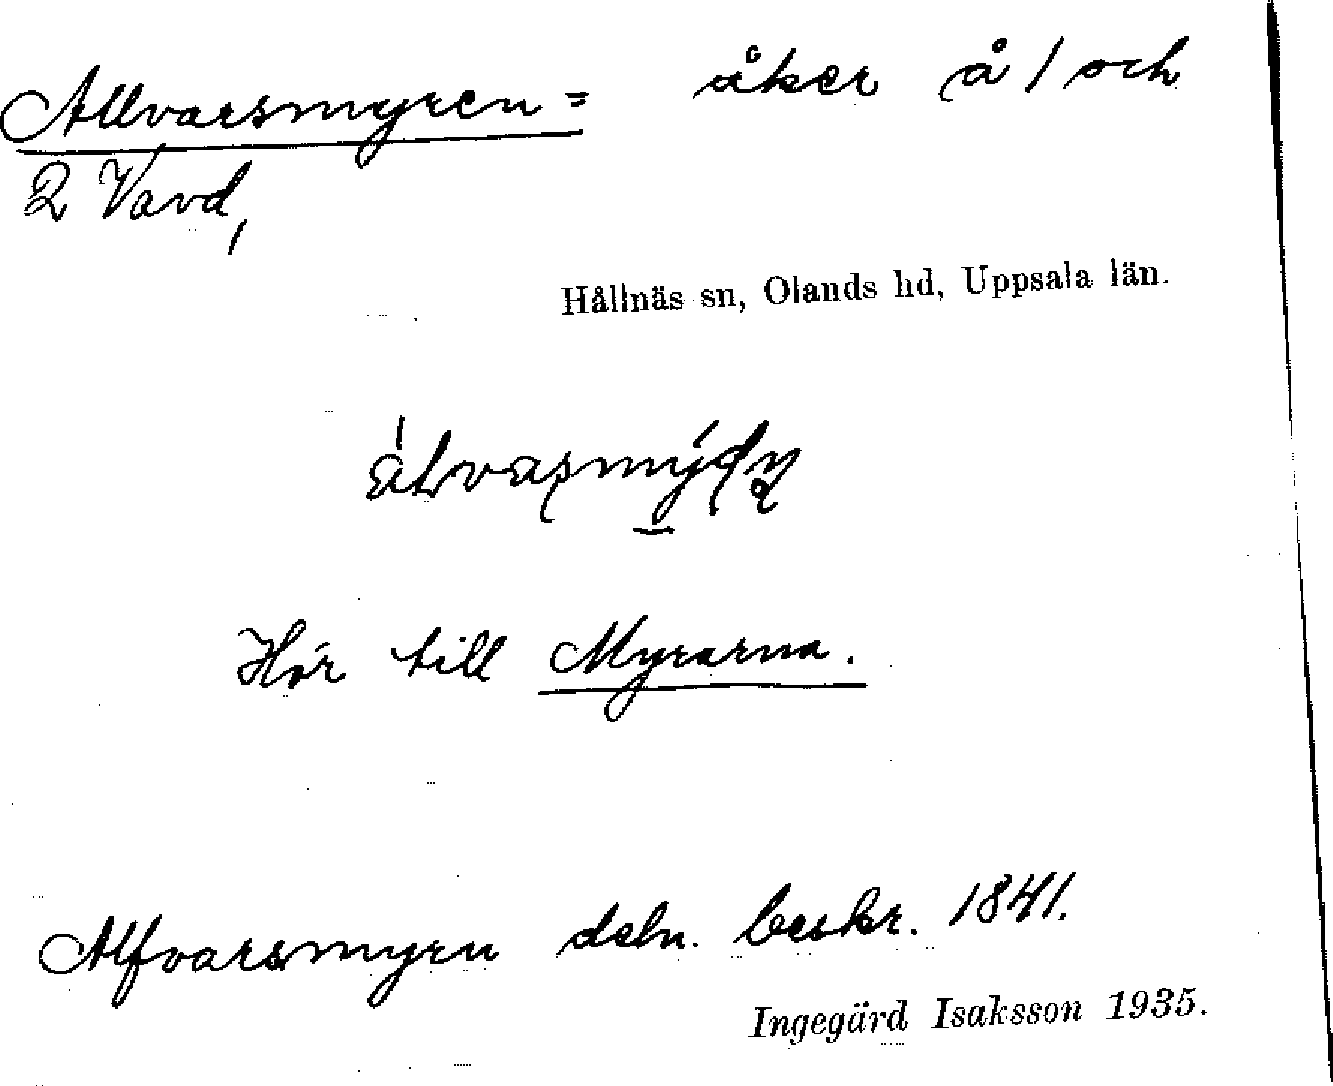 Allvarsmyren = åker å 1 och
2 Vavd,
Hållnäs sn, Olands hd, Uppsala län.
Hör till Myrarna.
Alfvarsmyren deln. beskr. 1841.
Ingegärd Isaksson 1935.